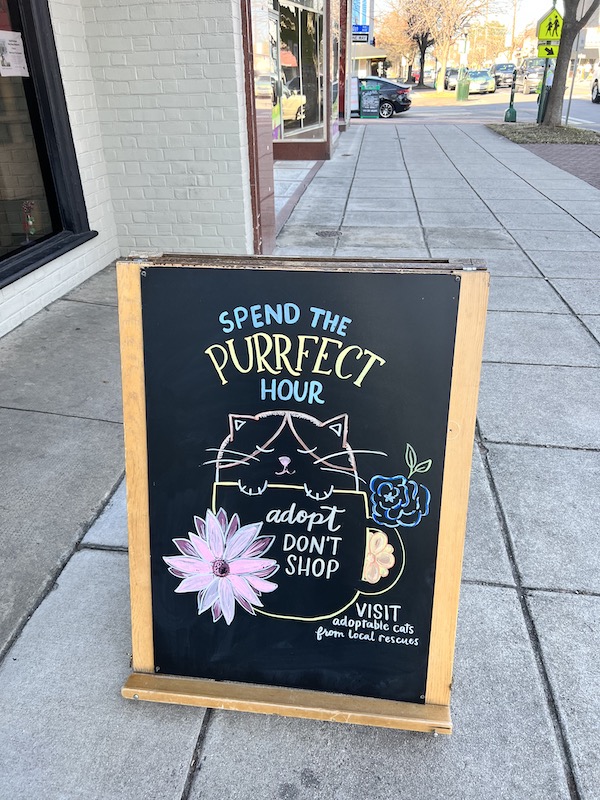 SPEND THE
PURRFECT
HOUR
adopt
DON'T
SHOP
VISIT
adoptable cats
from local rescues